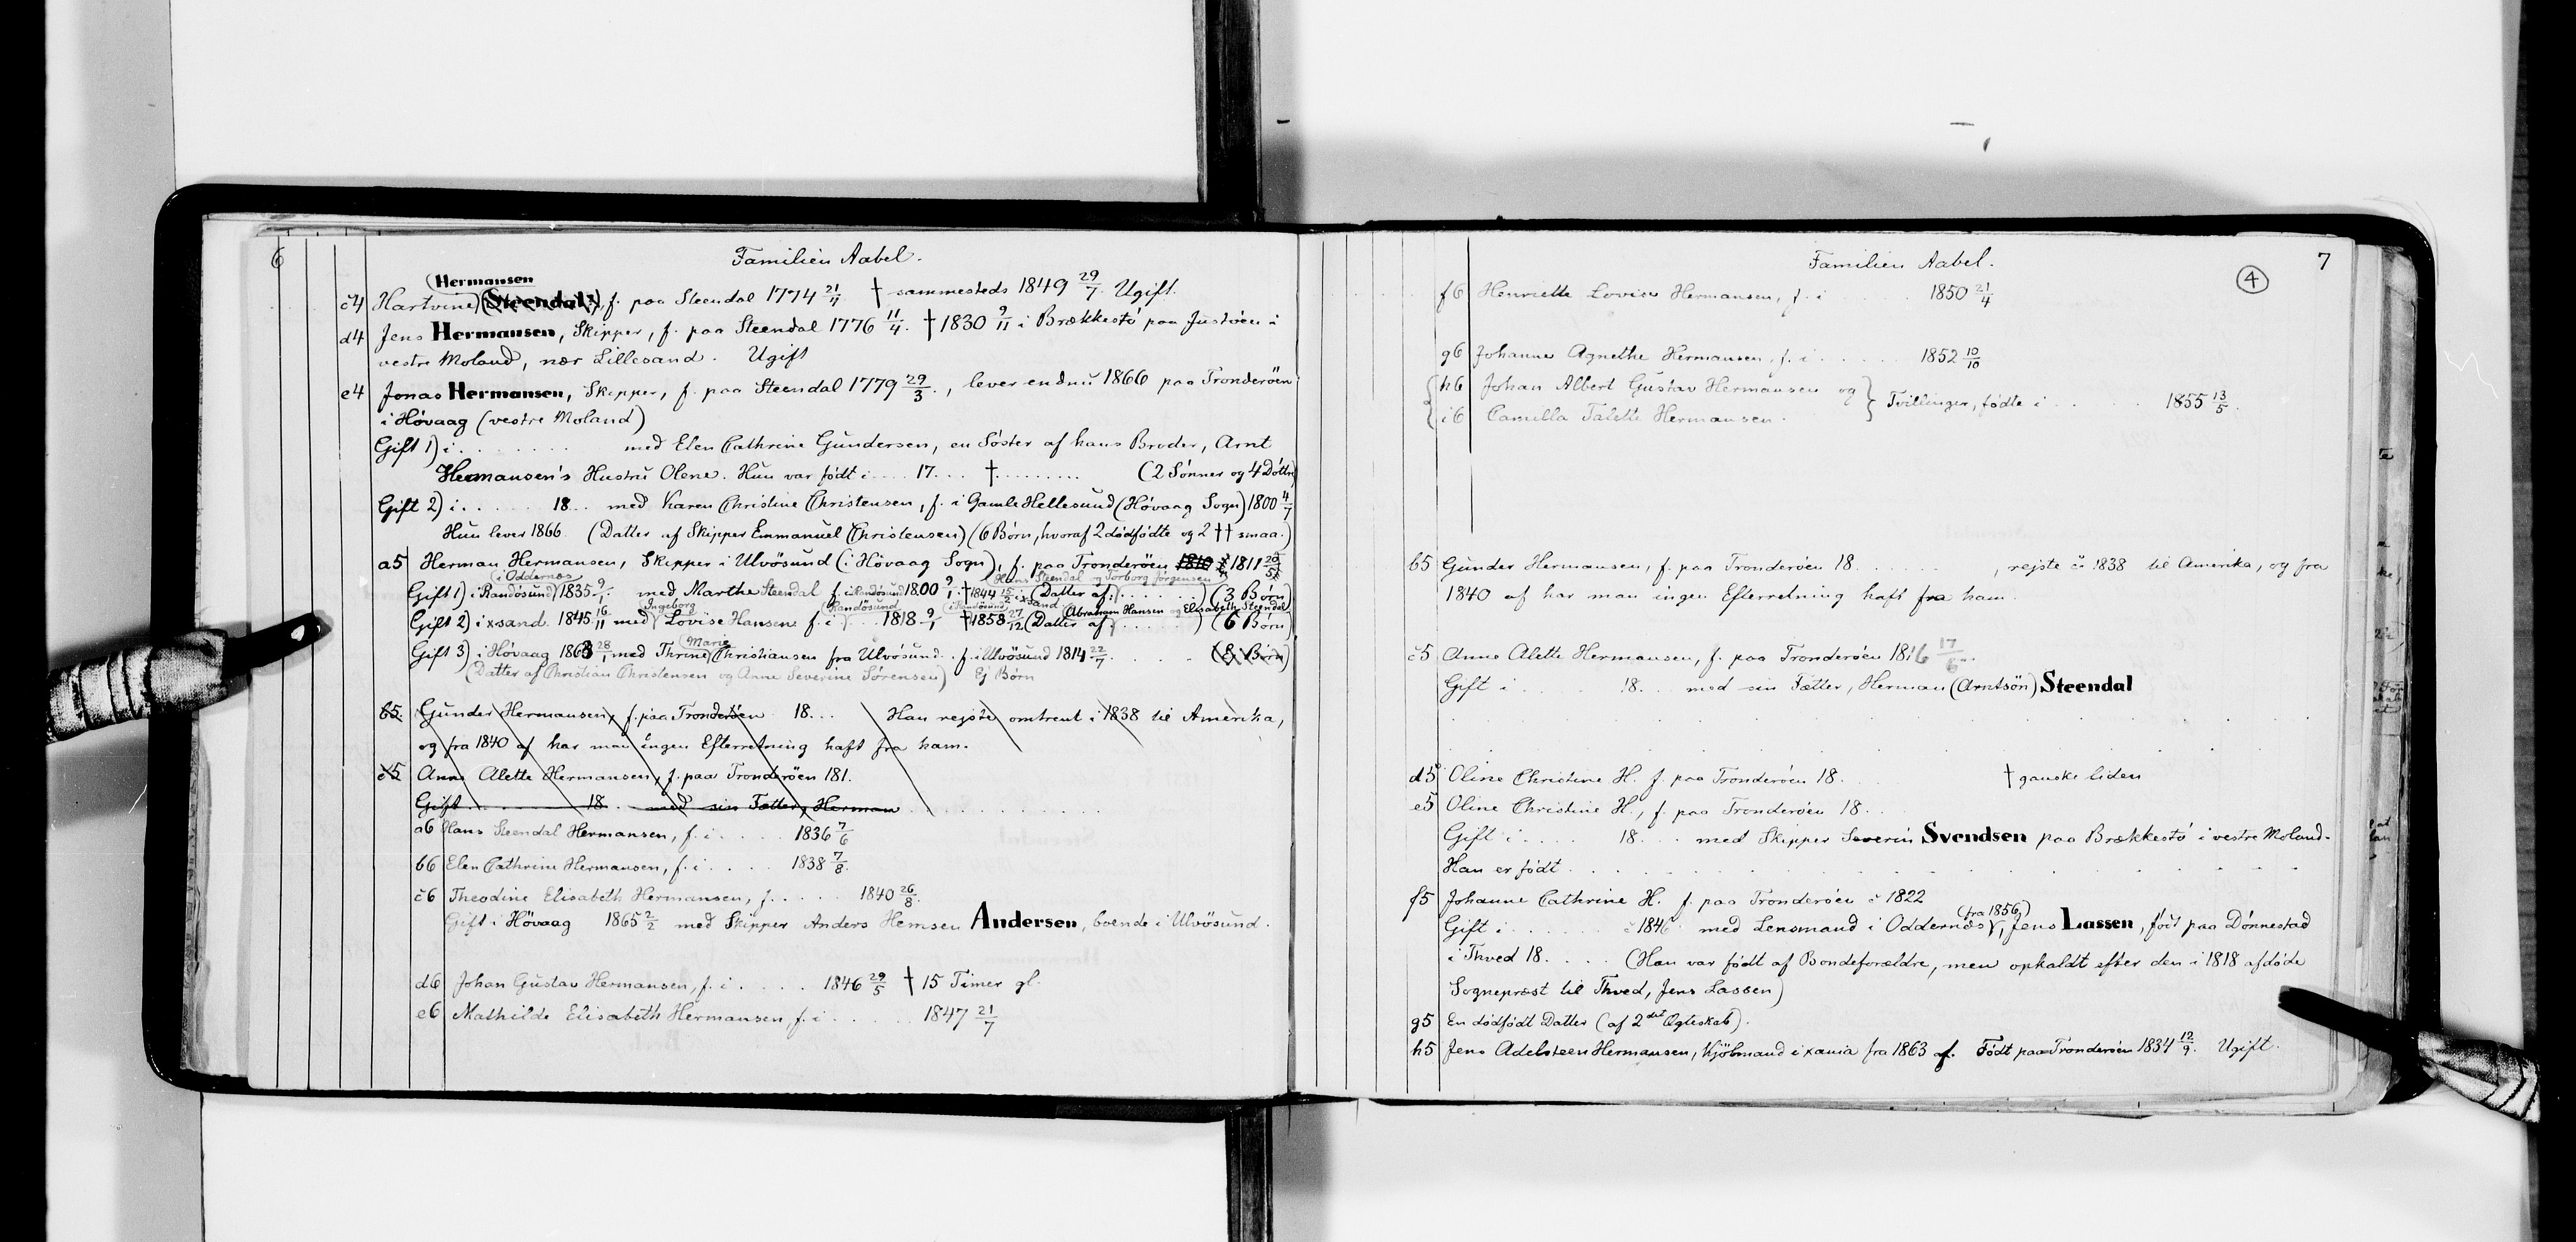 6
Familien Aabel.
(Hermansen
c4 Hartvine) (Steendal?), f. paa Steendal 1774 21/4 † sammesteds 1849 29/7. Ugift.
d4 Jens Hermansen, Skipper, f. paa Steendal 1776 11/4. † 1830 9/11 i Brækkestö paa Justöen i
vestre Moland, nær Lillesand. Ugift
e4 Jonas Hermansen, Skipper, f. paa Steendal 1779 29/3., lever endnu 1866 paa Tronderöen
i Hövaag (vestre Moland)
Gift 1) i . . . . . . . . med Elen Cathrine Gundersen, en Söster af hans Broder, Arnt
Hermansen's Hustru Olene. Hun var födt i . . . . 17 . . . † . . . . . . . . . (2 Sönner og 4 Döttre)
Gift 2) i . . . . . . 18 . . med Karen Christine Christensen, f. i Gamle Hellesund (Hövaag Sogn) 1800 4/7
Hun lever 1866. (Datter af Skipper Emmanuel Christensen) (6 Börn, hvoraf 2 dödfödte og 2 †† smaa.)
a5 Herman Hermansen, Skipper i Ulvösund (i Hövaag Sogn), f. paa Tronderöen 1810 1811 20/5
(i Oddernæs Hans Steendal og Torborg Jörgensen
Gift 1) i Randösund) 1835 9/1. med Marthe Steendal f. i Randösund 1800 9/1. † 1844 i x.sand (Datter af . . . . . . .) (3 Börn)
Ingeborg (Randösund (i Randösund) (Abraham Hansen og Elisabeth Steendal
Gift 2) i x-sand. 1845 16/11 med Lovise Hansen f. i . . . 1818 9/1 † 1858 27/12 (Datter af . . . . . . .) (6 Börn)
(Marie
Gift 3) i Hövaag 1863 28/1 med Thrine Christiansen fra Ulvösund. f. i Ulvösund 1814 22/7. . . . . (Ej Börn)
(Datter af Christian Christensen og Anne Severine Sörensen) Ej Börn
b5. Gunder Hermansen, f. paa Tronderöen 18. . . Han rejste omtrent i 1838 til Amerika,
og fra 1840 af har man ingen Efterretning haft fra ham.
c5 Anne Alette Hermansen, f. paa Tronderöen 181.
Gift . . . . . . . 18 . . med sin Fætter, Herman . . . . . . . . . .
a6 Hans Steendal Hermansen, f. i . . . . . 1836 7/6
b6 Elen Cathrine Hermansen, f. i . . . . . 1838 7/8.
c6 Theodine Elisabeth Hermansen, f. . . . . . 1840 26/8.
Gift i Hövaag 1865 2/2 med Skipper Anders Hemsen Andersen, boende i Ulvösund.
d6 Johan Gustav Hermansen, f. i . . . . . 1846 29/5 † 15 Timer gl.
e6 Mathilde Elisabeth Hermansen, f. i . . . . . . 1847 21/7
Familien Aabel.
7
4
f6 Henriette Lovise Hermansen, f. i . . . . . 1850 21/4
g6 Johanne Agnethe Hermansen, f. i . . . . . . 1852 10/10
h6 Johan Albert Gustav Hermansen og
i6 Camilla Talette Hermansen. } Tvillinger, födte i . . . . . . . 1855 13/5.
b5 Gunder Hermansen, f. paa Tronderöen 18. . . . . . . . , rejste c 1838 til Amerika, og fra
1840 af har man ingen Efterretning haft fra ham.
c5 Anne Alette Hermansen, f. paa Tronderöen 1816 17/6.
Gift i . . . . . . 18. . . med sin Fætter, Herman (Arntsön) Steendal
d5 Oline Christine H. f. paa Tronderöen 18. . . † ganske liden
e5 Oline Christine H., f. paa Tronderöen 18. . .
Gift i . . . . . 18. . . med Skipper Severin Svendsen paa Brækkestö i vestre Moland.
Han er födt . . . . . . . . . . . . . .
f5 Johanne Cathrine H. f. paa Tronderöen c 1822
(fra 1856)
Gift i . . . . . . . . c 1846 med Lensmand i Oddernæs, Jens Lassen, födt paa Dönnestad
i Thved 18. . . . . (Han var födt af Bondeforældre, men opkaldt efter den i 1818 afdöde
Sognepræst til Thved, Jens Lassen)
g5 En dödfödt Datter (af 2det Ægteskab).
h5 Jens Adelsteen Hermansen, Kjöbmand i xania fra 1863 af. Födt paa Tronderöen 1834 12/9. Ugift.